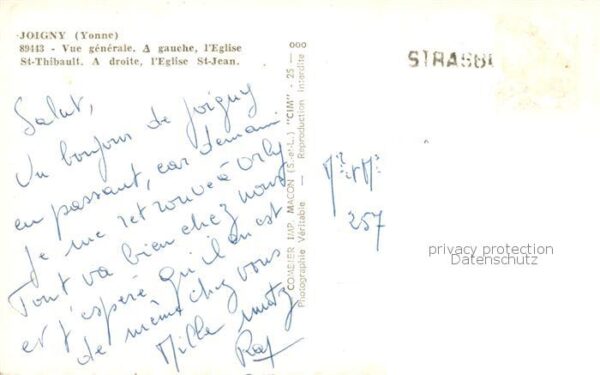 JOIGNY (Yonne)
89443 - Vue générale. A gauche, l'Eglise
St-Thibault. A droite, l'Eglise St-Jean.
Salut,
Un bonjour de Joigny
en passant, car demain
je me retrouve à Orly
Tout va bien chez nous
et j'espère qu'il en est
de même chez vous
Mille
COMBIER IMP. MACON (S.-et-L.) "CIM" - 25 - 000
Photographie Véritable - Reproduction Interdite
STRASB
Mr et Me
257
privacy protection
Datenschutz